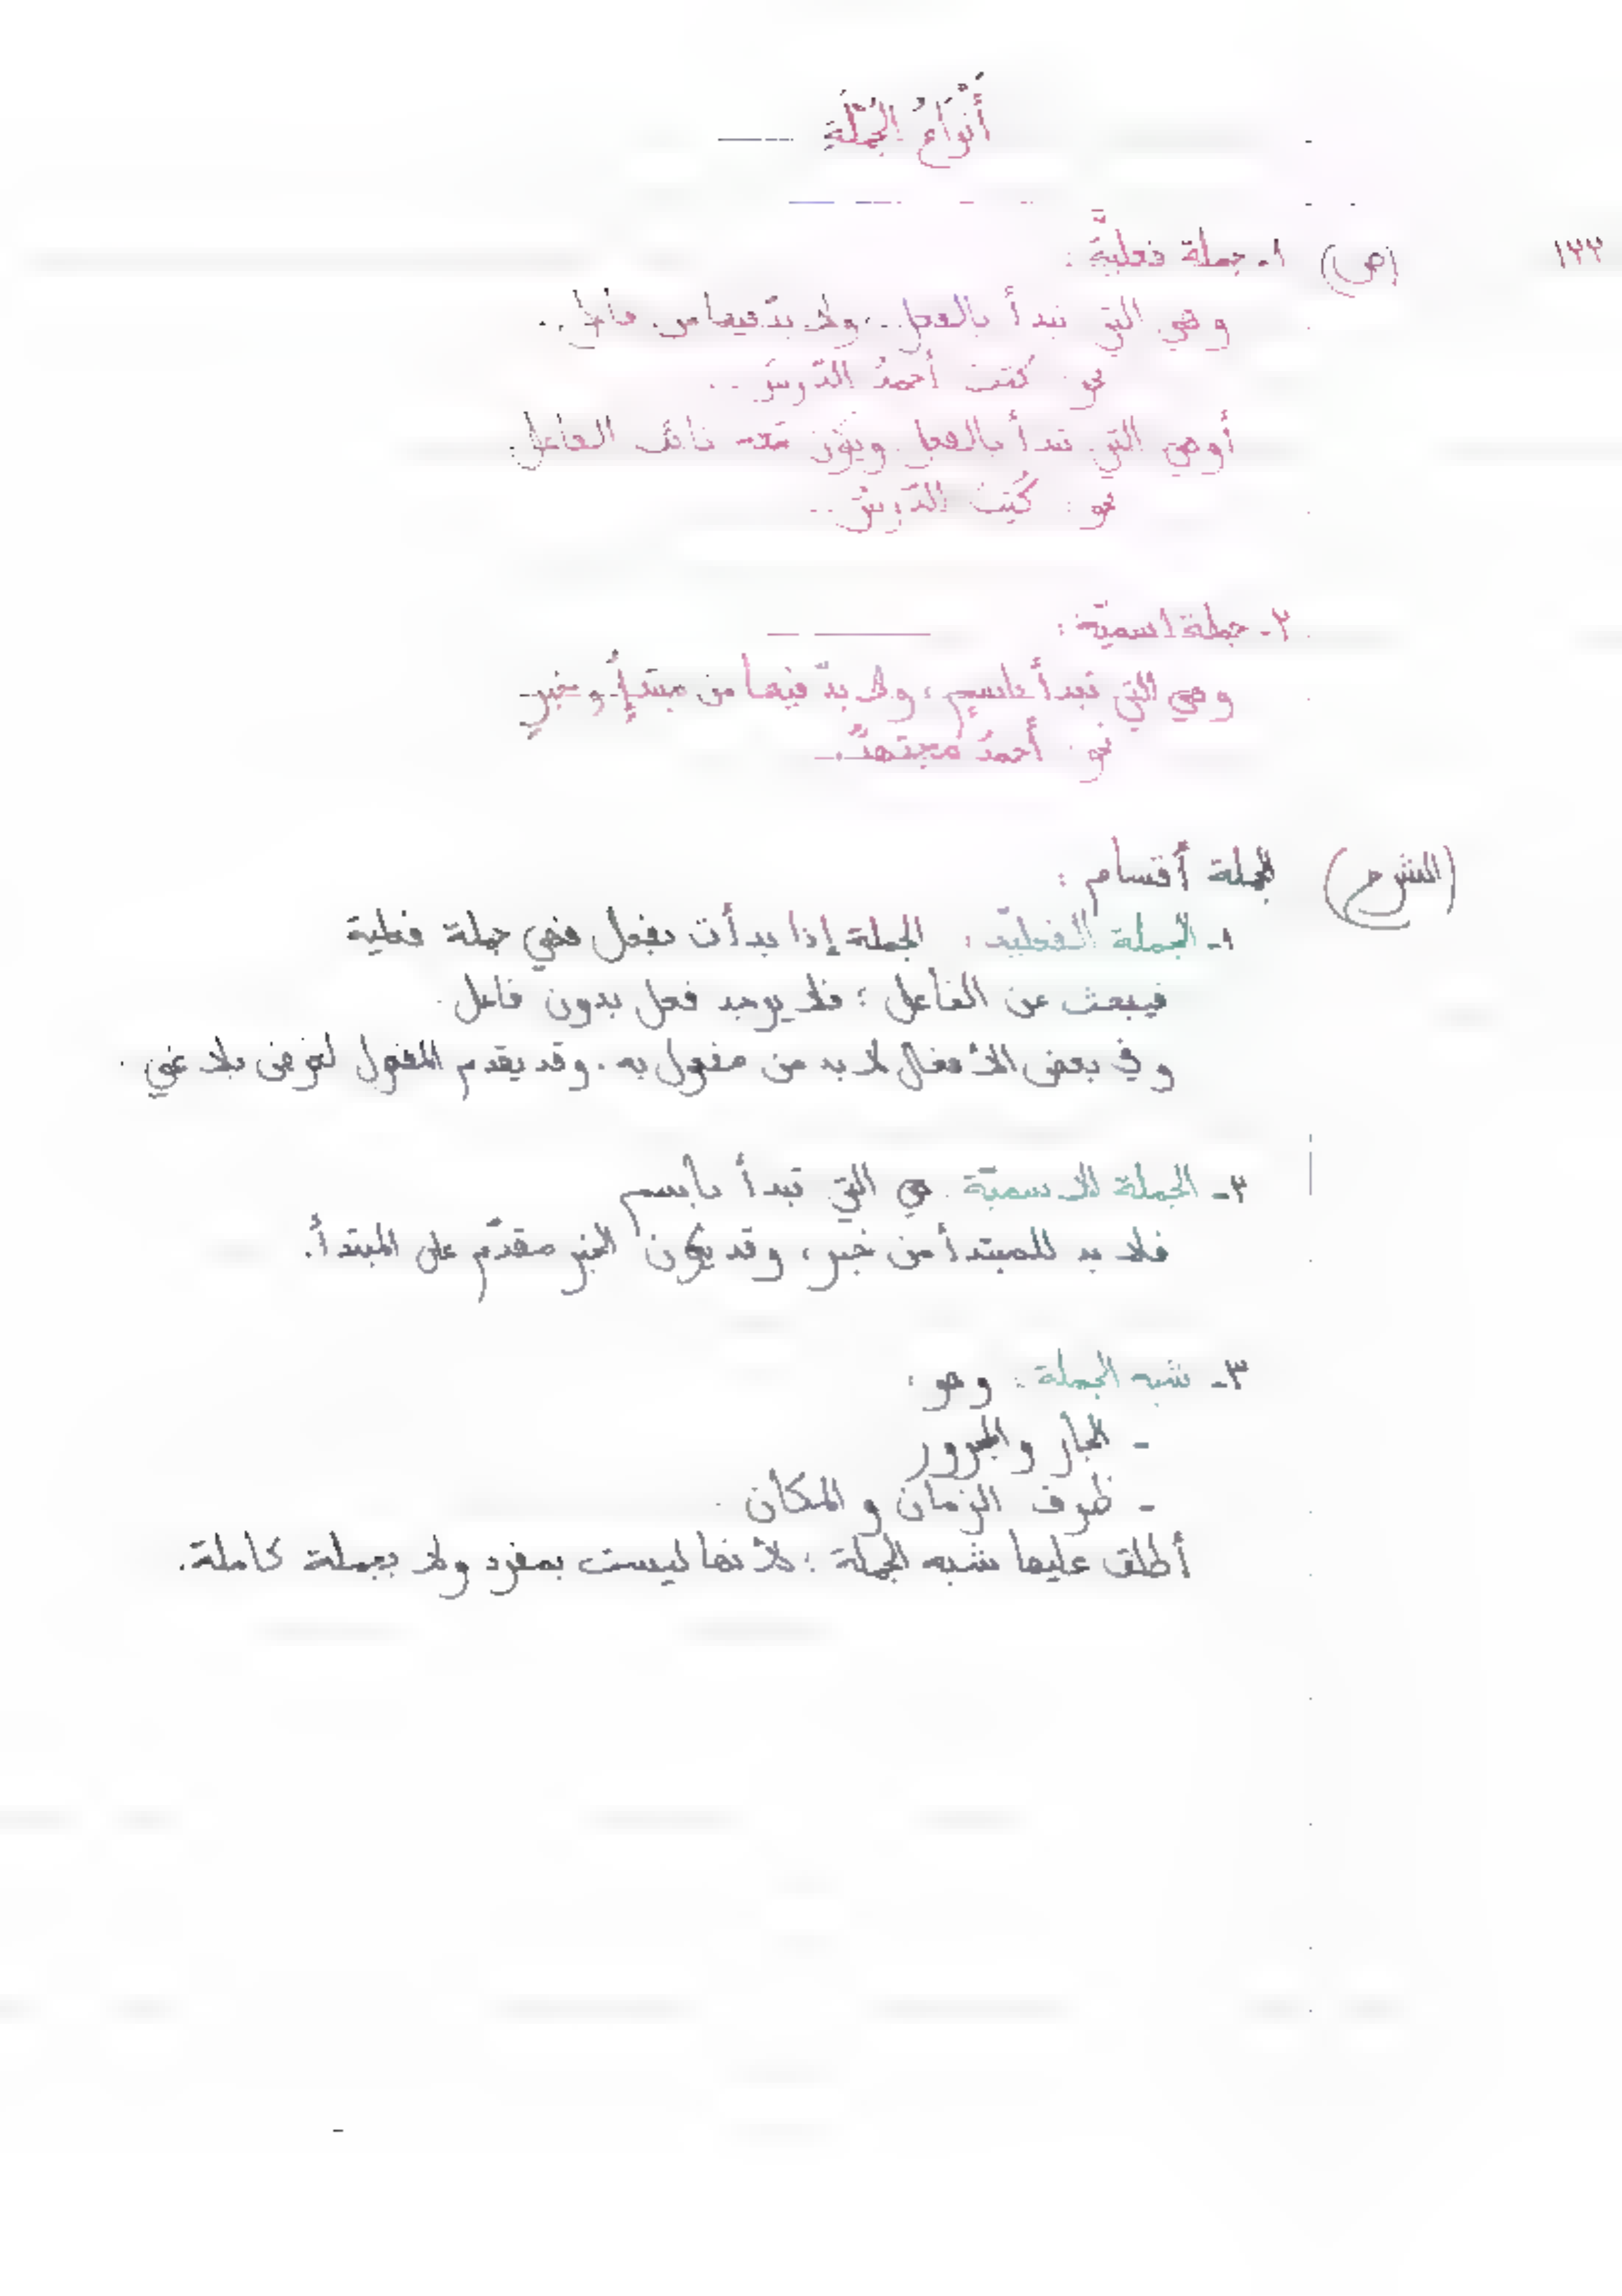 أَنْوَاعُ الجُمْلَةِ
١٢٢ (ص) ١- جملة فعليةٌ :
وهي التي تبدأ بالفعل، ولا بدّ فيها من فاعل.
نحو: كتب أحمدُ الدّرسَ..
أو هي التي تبدأ بالفعل ويكون معه نائب الفاعل.
نحو: كُتِبَ الدّرسُ..
٢- جملة اسميّة :
وهي التي تبدأ باسمٍ، ولا بدّ فيها من مبتدإٍ وخبرٍ
نحو: أحمدُ مجتهدٌ.
(الشرح) الجملة أقسام :
١- الجملة الفعليّة : الجملة إذا بدأت بفعل فهي جملة فعلية
فيبحث عن الفاعل ؛ فلا يوجد فعل بدون فاعل.
وفي بعض الأفعال لا بد من مفعول به. وقد يقدم المفعول لغرض بلاغي.
٢- الجملة الاسميّة هي التي تبدأ باسم
فلا بد للمبتدأ من خبر، وقد يكون الخبر مقدّم على المبتدأ.
٣- شبه الجملة : وهو :
- الجار والمجرور
- ظرف الزمان والمكان.
أطلق عليها شبه الجملة ؛ لأنها ليست بمفرد ولا بجملة كاملة.